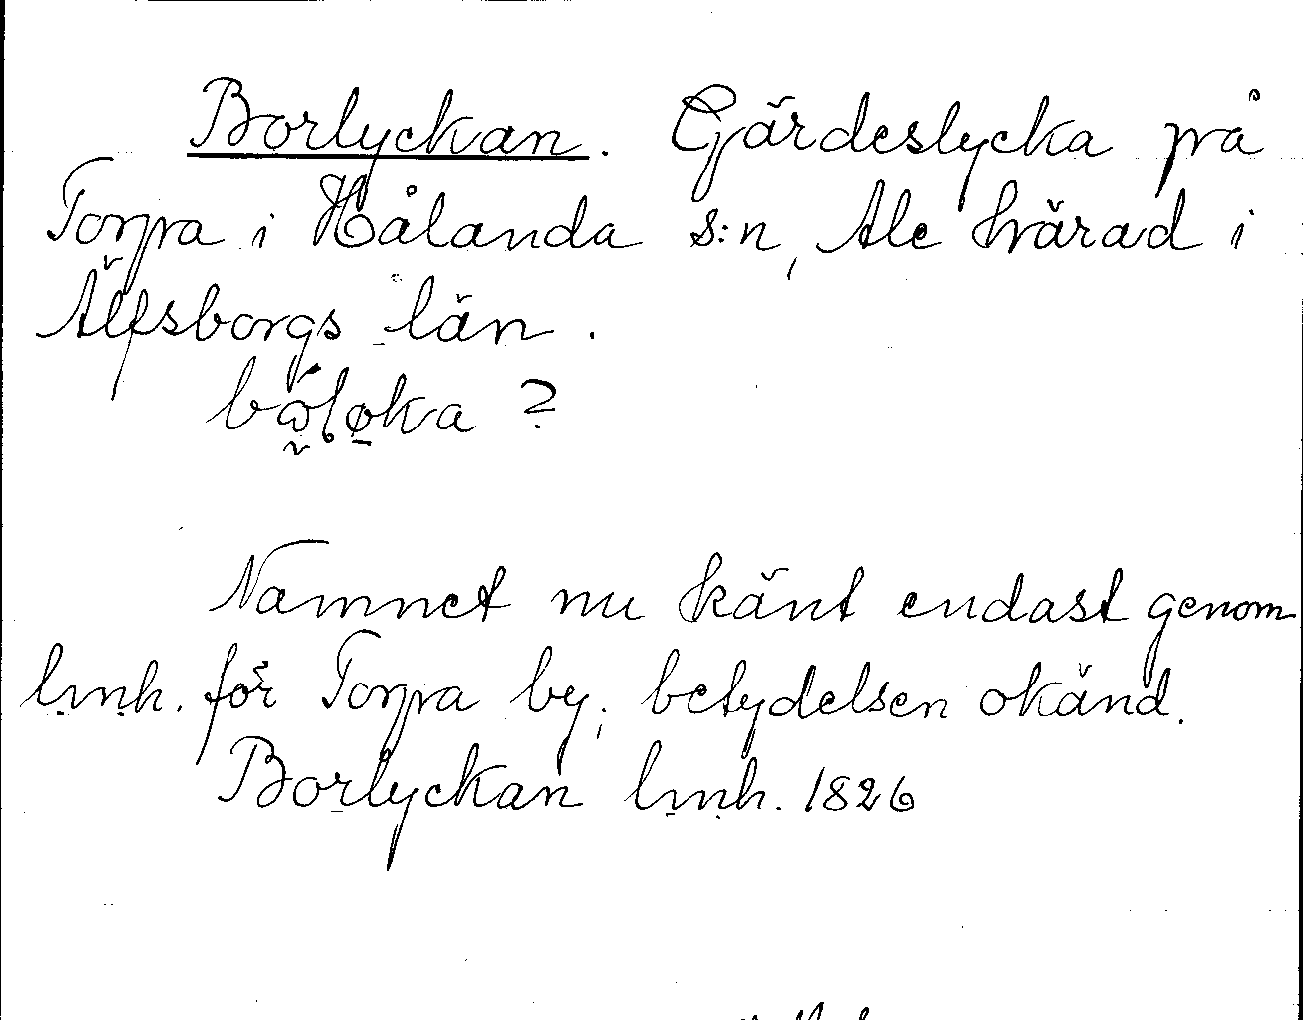 Borlyckan. Gärdeslycka på
Torpa i Hålanda s:n, Ale härad i
Älfsborgs län.
?
Namnet nu känt endast genom
lmh. för Torpa by; betydelsen okänd.
Borlyckan lmh. 1826